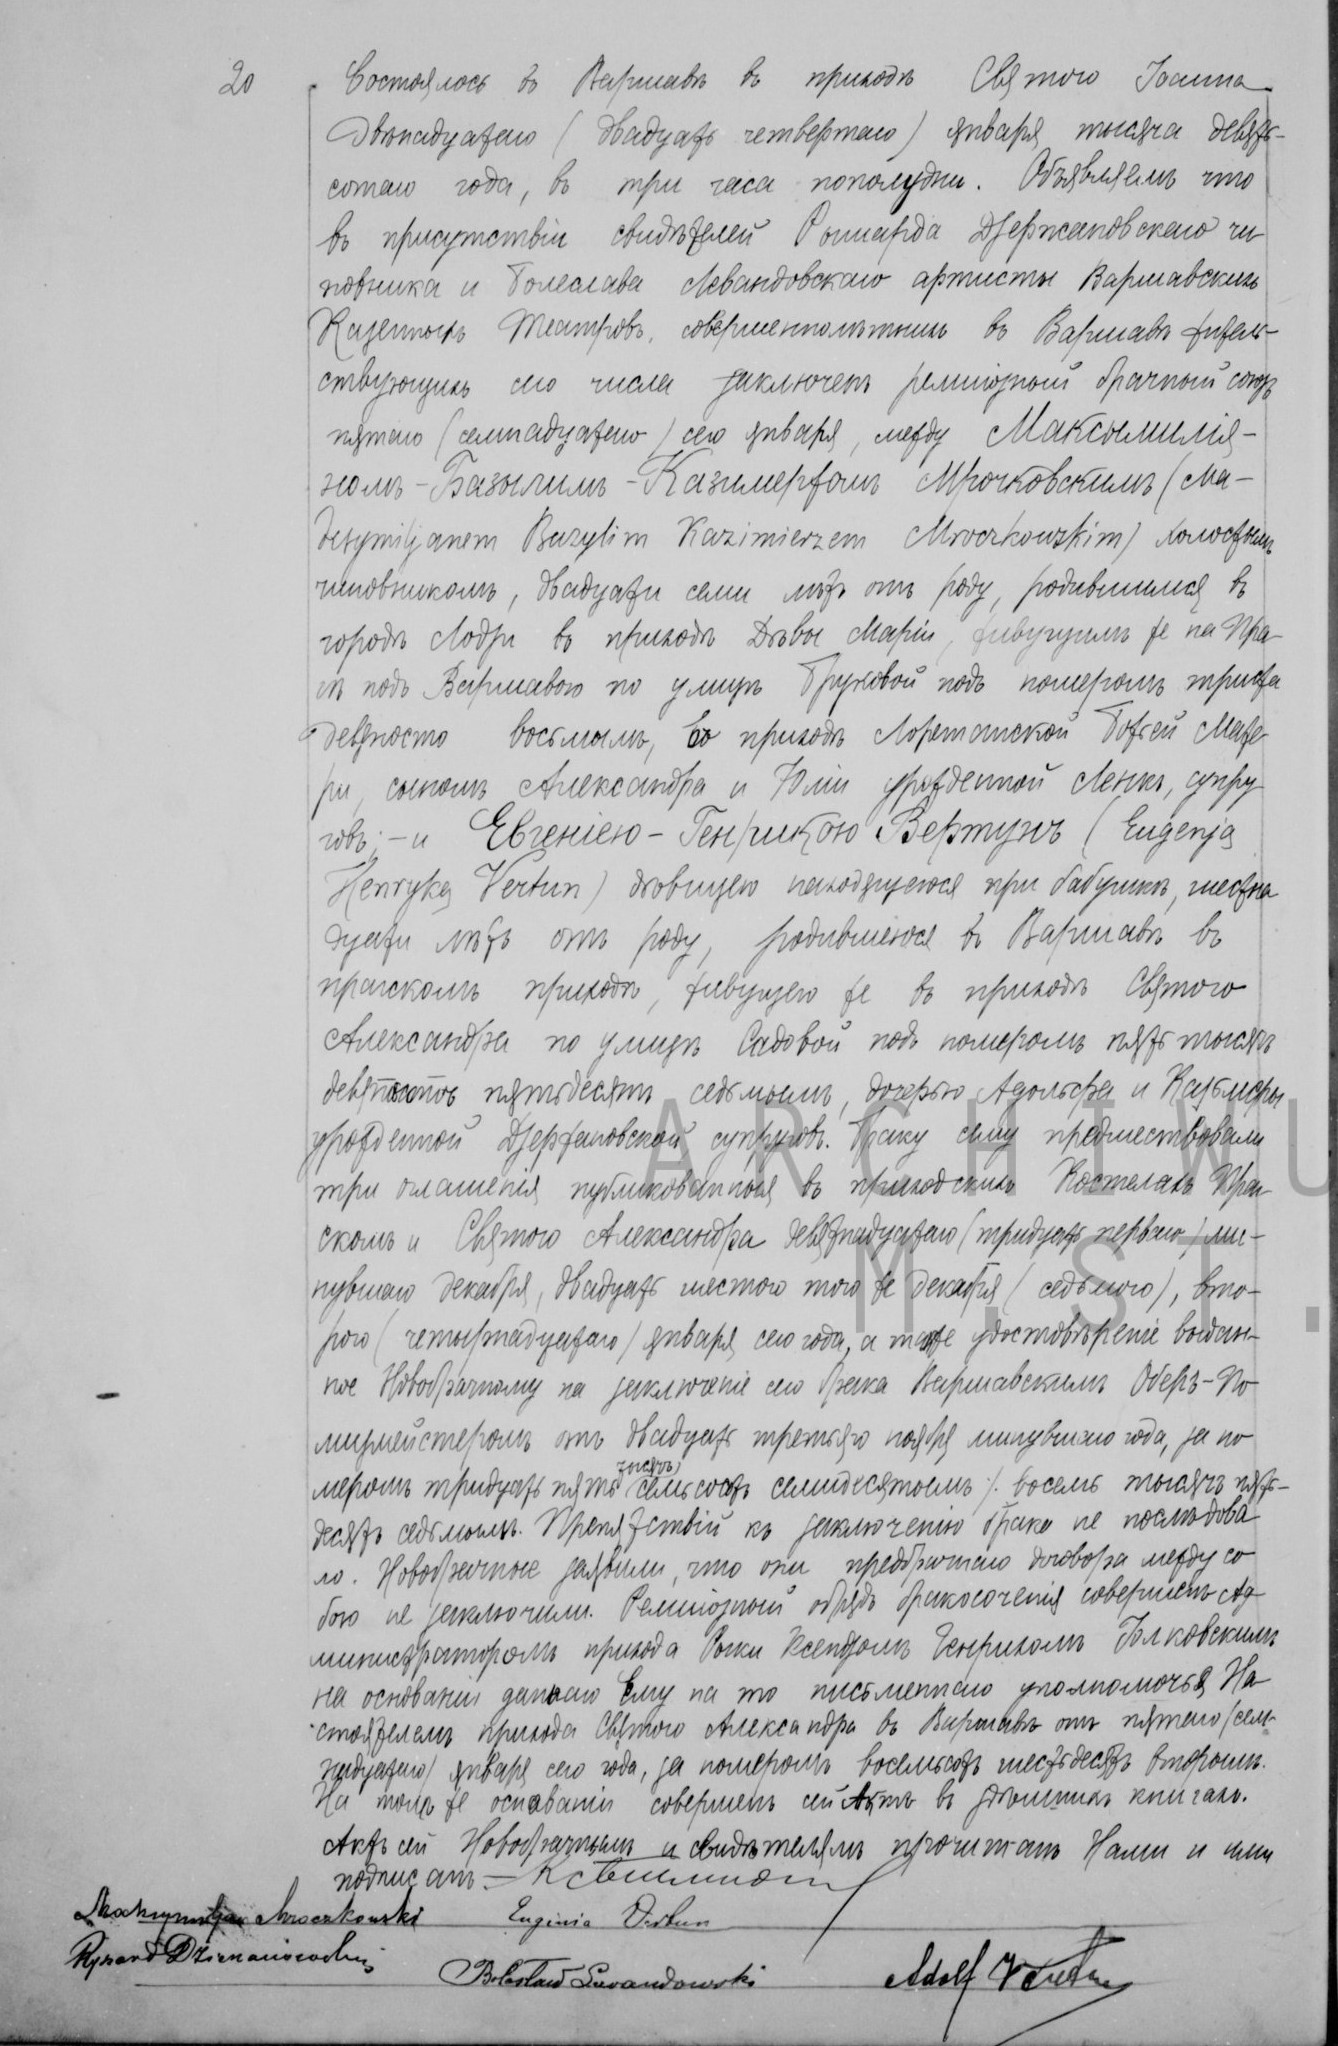 20
Состоялось въ Варшавѣ въ приходѣ Святого Іоанна
Двѣнадцатаго (двадцать четвертаго) января тысяча девять-
сотаго года, въ три часа пополудни. Объявляемъ что
въ присутствіи свидѣтелей Рышарда Држежановскаго чи-
новника и Болеслава Левандовскаго артисты Варшавскихъ
Казенныхъ Театровъ, совершеннолѣтнихъ въ Варшавѣ житель-
ствующихъ сего числа заключенъ религіозный брачный союзъ
пятаго (семнадцатаго) сего января, между Максымилія-
номъ-Базылимъ-Казимержомъ Мрочковскимъ (Ма-
ksymiljanem Bazylim Kazimierzem Mroczkowskim) холостымъ
чиновникомъ, двадцати семи лѣтъ отъ роду, родившимся въ
городѣ Лодзи въ приходѣ Дѣвы Маріи, живущимъ же на Пра-
гѣ подъ Варшавою по улицѣ Бруковой подъ номеромъ триста
девяносто восьмымъ, въ приходѣ Лоретанской Божей Мате-
ри, сыномъ Александра и Юліи урожденной Ленкъ, супру
говъ; - и Евгеніею-Генрикою Вертунъ (Eugenją
Henryką Vertun) дѣвицею находящеюся при бабушкѣ, шестна
дцати лѣтъ отъ роду, родившеюся въ Варшавѣ въ
прагскомъ приходѣ, живущею же въ приходѣ Святого
Александра по улицѣ Садовой подъ номеромъ пять тысячъ
пятьдесятъ седьмымъ, дочерью Адольфа и Казимеры
урожденной Држежановской супруговъ. Браку сему предшествовали
три оглашенія публикованныя въ приходскихъ Костелахъ Праг-
скомъ и Святого Александра девятнадцатаго (тридцать перваго) ми-
нувшаго декабря, двадцать шестого того же декабря (седьмого), вто-
рого (четырнадцатаго) января сего года, а также удостовѣреніе выдан-
ное Новобрачному на заключеніе сего брака Варшавскимъ Оберъ-По
лицмейстеромъ отъ двадцать третьяго ноября минувшаго года, за но
тысячъ
меромъ тридцать пять семьсотъ семидесятымъ /. восемь тысячъ пять-
десятъ седьмымъ. Препятствій къ заключенію брака не послѣдова
ло. Новобрачные заявили, что они предбрачнаго договора между со
бою не заключили. Религіозный обрядъ бракосоченія совершенъ Ад-
министраторомъ прихода Ксендзомъ Генрихомъ
на основаніи даннаго Ему на то письменнаго уполномочья На
стоятелемъ прихода Святого Александра въ Варшавѣ отъ пятаго (сем-
надцатаго) января сего года, за номеромъ восемьсотъ шестьдесятъ вторымъ.
На томъ же основаніи совершенъ сей Актъ въ здѣшнихъ книгахъ.
Актъ сей Новобрачнымъ и свидѣтелямъ прочитанъ Нами и ими
подписанъ. -
Maksymiljan Mroczkowski Eugenia Vertun
Ryszard Dzierzanowski
Bolesław Lewandowski Adolf Vertun
ARCHIWU
M.ST.